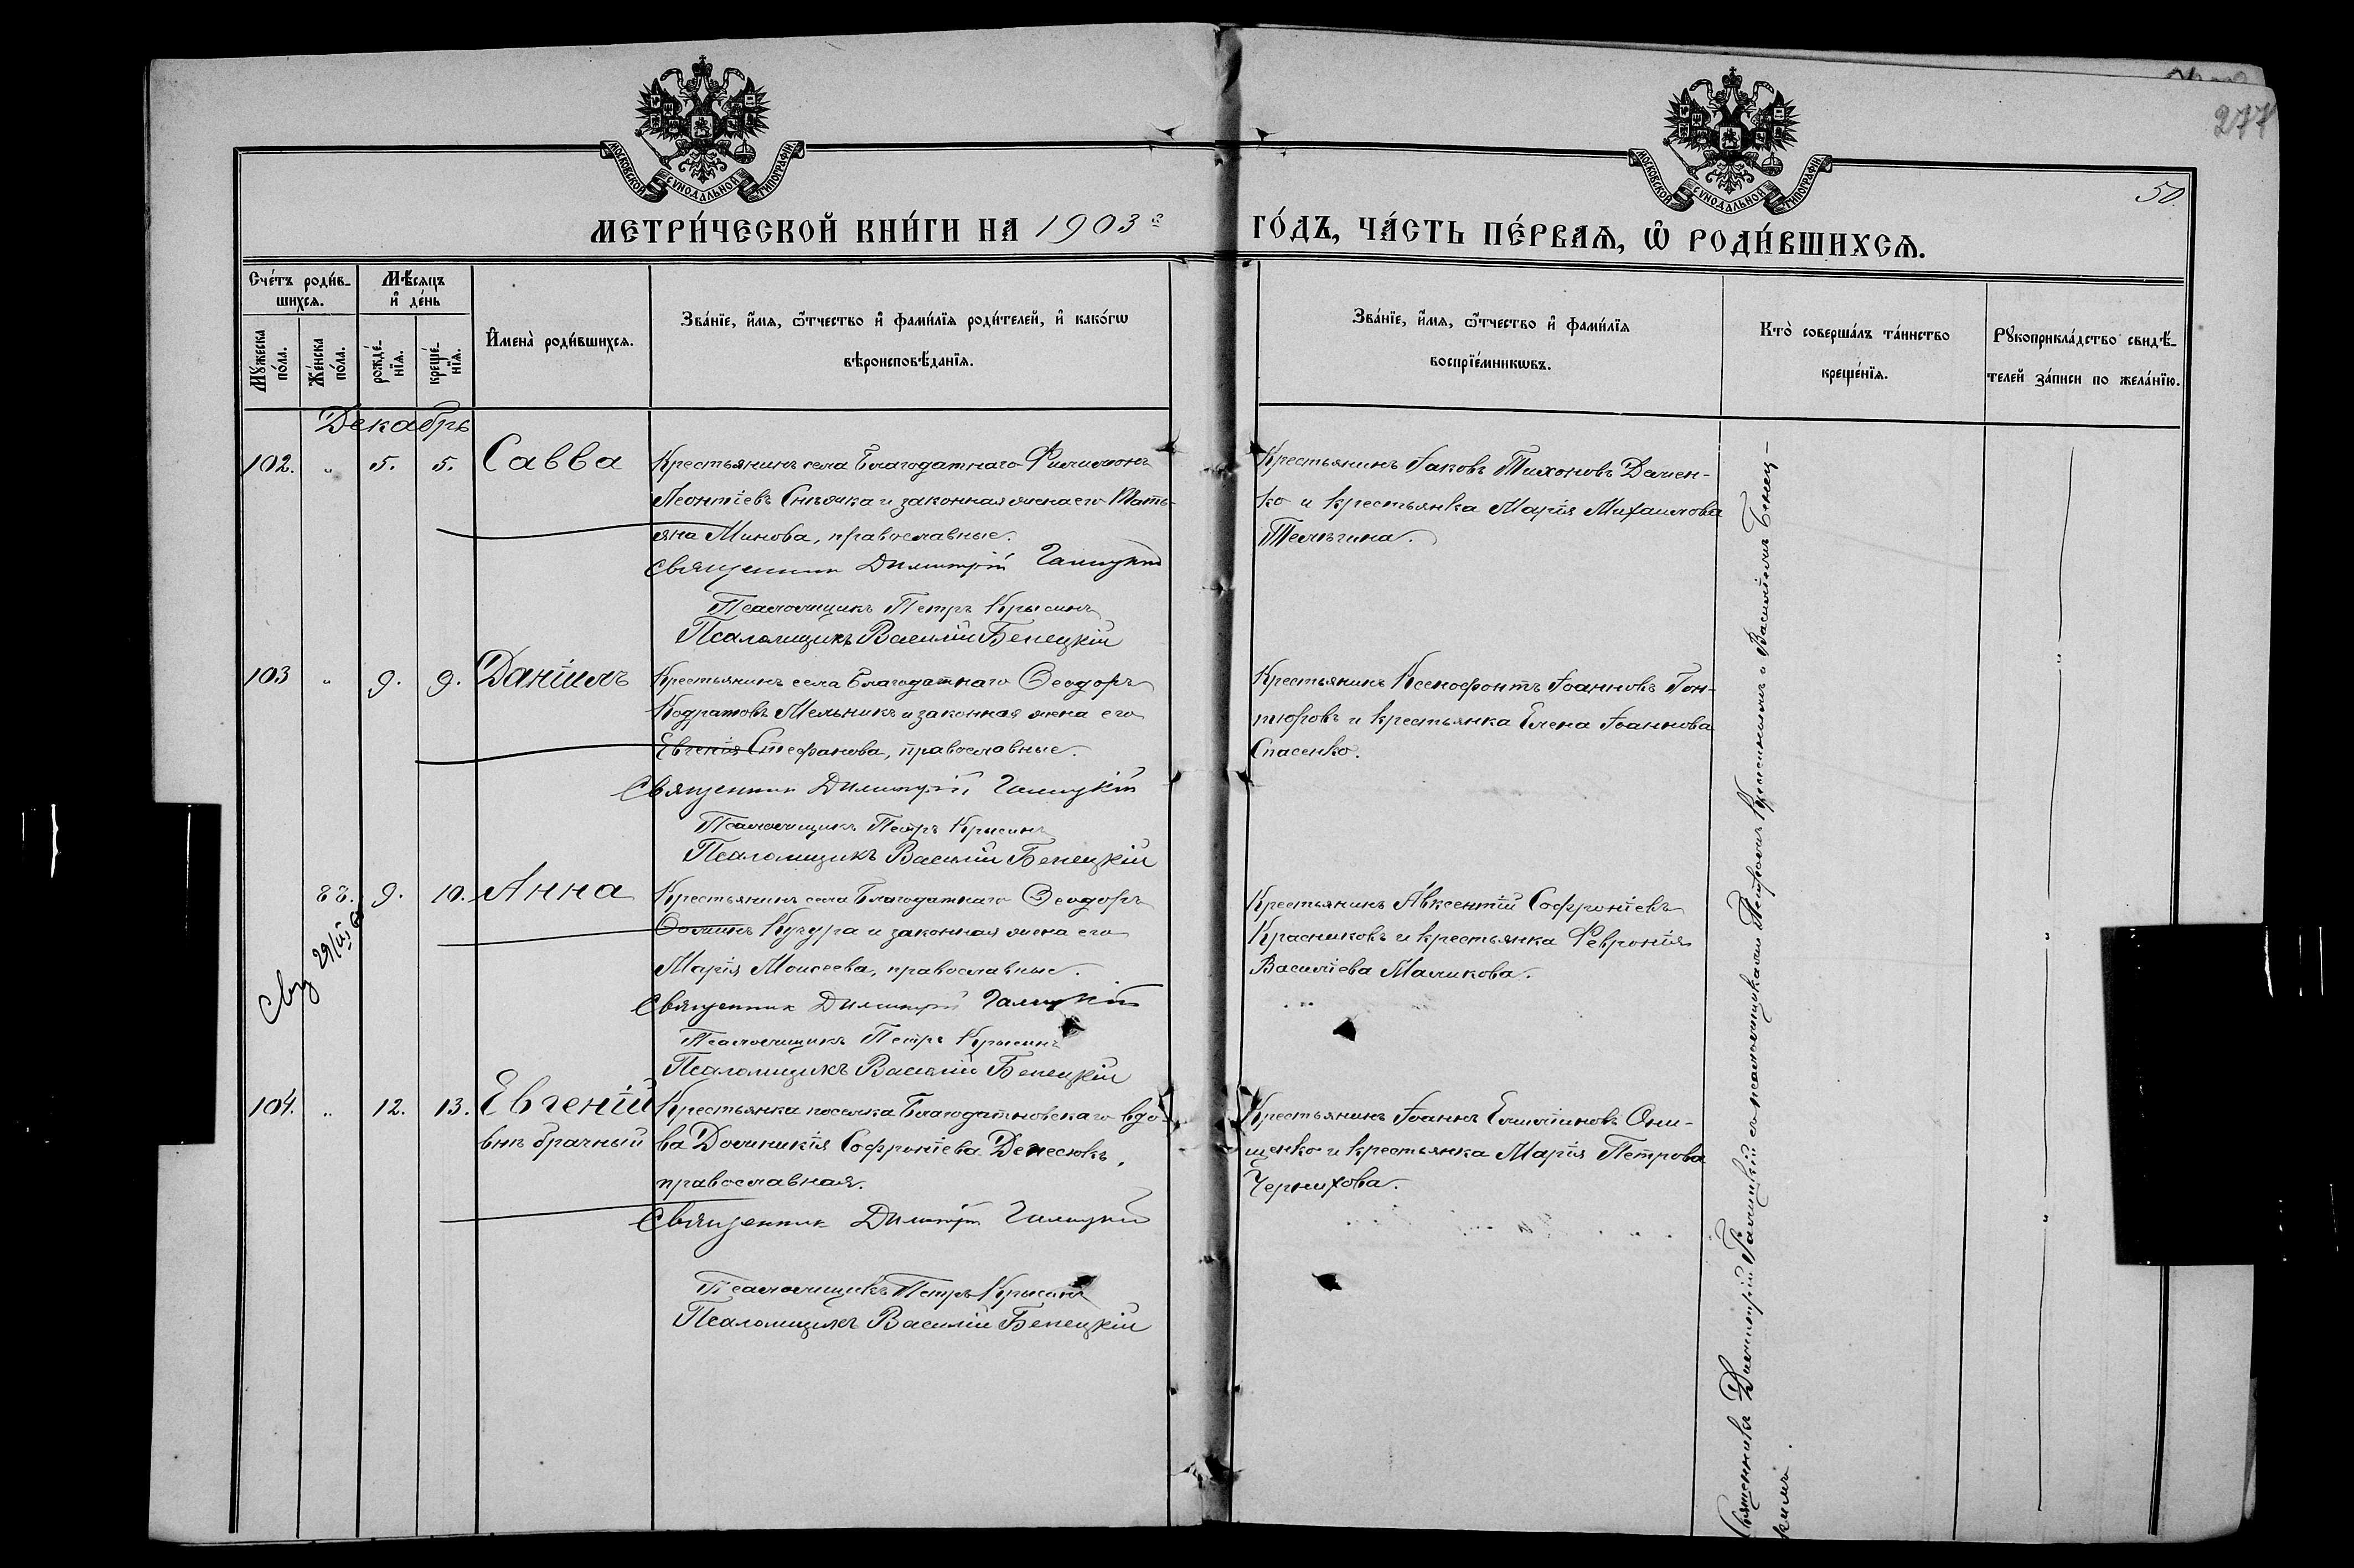 277
50.
МОСКОВСКОЙ СУНОДАЛЬНОЙ ТИПОГРАФІИ
МОСКОВСКОЙ СУНОДАЛЬНОЙ ТИПОГРАФІИ
МЕТРИ́ЧЕСКОЙ КНИ́ГИ НА 1903 г
ГО́ДЪ, ЧА́СТЬ ПЕ́РВАѦ, Ѡ РОДИ́ВШИХСѦ.
Сче́тъ роди́в-
шихсѧ.
Мѣ́сяцъ
и де́нь
Мꙋжеска
по́ла.
Же́нска
по́ла.
рожде́-
нїѧ.
креще́-
нїѧ.
Имена̀ роди́вшихсѧ.
Зва́нїе, и́мѧ, ѻтчество и фами́лїѧ роди́телей, и како́гѡ
вѣроисповѣ́данїѧ.
Зва́нїе, и́мѧ, ѻтчество и фами́лїѧ
воспрїе́мникѡвъ.
Кто̀ соверша́лъ та́инство
креще́нїѧ.
Рꙋкоприкла́дство свидѣ́-
телей за́писи по жела́нїю.
Декабрь
102. " 5. 5. Савва
Крестьянинъ села Благодатнаго Филимонъ
Леонтіевъ Снѣжка и законная жена его Тать-
яна Минова, православные.
Священник Димитрій Галицкій
Псаломщикъ Петръ Крысинъ
Псаломщикъ Василій Бенецкій
Крестьянинъ Іаковъ Тихоновъ Демен-
ко и крестьянка Марія Михаилова
Телѣгина.
103 " 9. 9. Даніилъ
Крестьянинъ села Благодатнаго Ѳеодоръ
Кодратовъ Мельникъ и законная жена его
Евгенія Стефанова, православные.
Священник Димитрій Галицкій
Псаломщикъ Петръ Крысинъ
Псаломщикъ Василій Бенецкій
Крестьянинъ Ксенофонтъ Іоанновъ Гон-
тюровъ и крестьянка Елена Іоаннова
Спасенко.
88. 9. 10. Анна
Крестьянинъ села Благодатнаго Ѳеодоръ
Ѳоминъ Кучура и законная жена его
Марія Моисеева, православные.
Священник Димитрій Галицкій
Псаломщикъ Петръ Крысинъ
Псаломщикъ Василій Бенецкій
Крестьянинъ Авксентій Софроніевъ
Красниковъ и крестьянка Февронія
Василіева Маликова.
104. " 12. 13. Евгеній
внѣ брачный
Крестьянка поселка Благодатновскаго вдо-
ва Домникія Софроніева Денесюкъ,
православная.
Священник Димитрій Галицкій
Псаломщикъ Петръ Крысинъ
Псаломщикъ Василій Бенецкій
Крестьянинъ Іоаннъ Емиліановъ Они-
щенко и крестьянка Марія Петрова
Черникова.
Священникъ Димитрій Галицкій съ псаломщиками Петромъ Крысинымъ и Василіемъ Бенец-
кимъ.